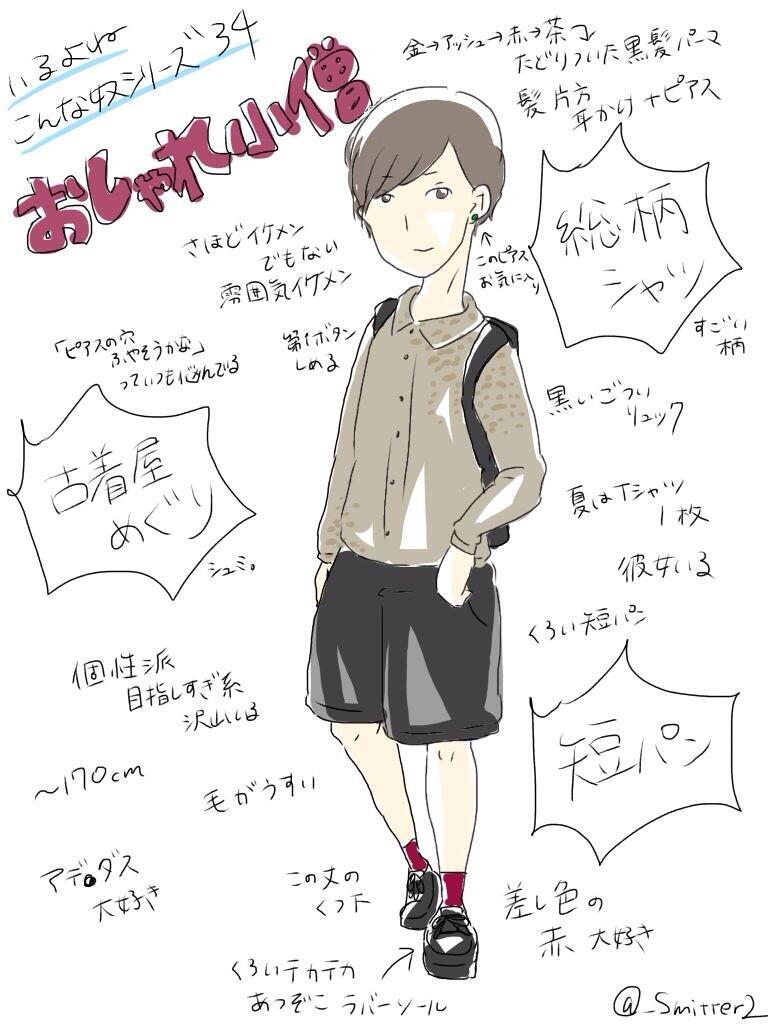 いるよね
こんな奴シリーズ34
おしゃれ小僧
金→アッシュ→赤→茶→
たどりついた黒髪パーマ
髪片方
耳かけ+ピアス
総柄
シャツ
すごい
柄
さほどイケメン
でもない
雰囲気イケメン
↑
このピアス
お気に入り
第1ボタン
しめる
「ピアスの穴
ふやそうかな」
っていつも悩んでる
古着屋
めぐり
シュミ。
黒いごつい
リュック
夏はTシャツ
1枚
彼女いる
くろい短パン
短パン
個性派
目指しすぎ系
沢山いる
～170cm
毛がうすい
アデ。ダス
大好き
この丈の
くつ下
差し色の
赤 大好き
くろいテカテカ
あつぞこ ラバーソール
@_Smitter2